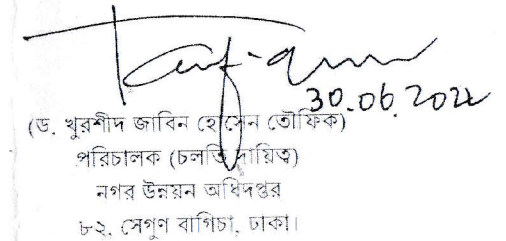 30.06.202
(ড. খুরশীদ জাবিন হোসেন তৌফিক)
পরিচালক (চলতি দায়িত্ব)
নগর উন্নয়ন অধিদপ্তর
৮২, সেগুণ বাগিচা, ঢাকা।